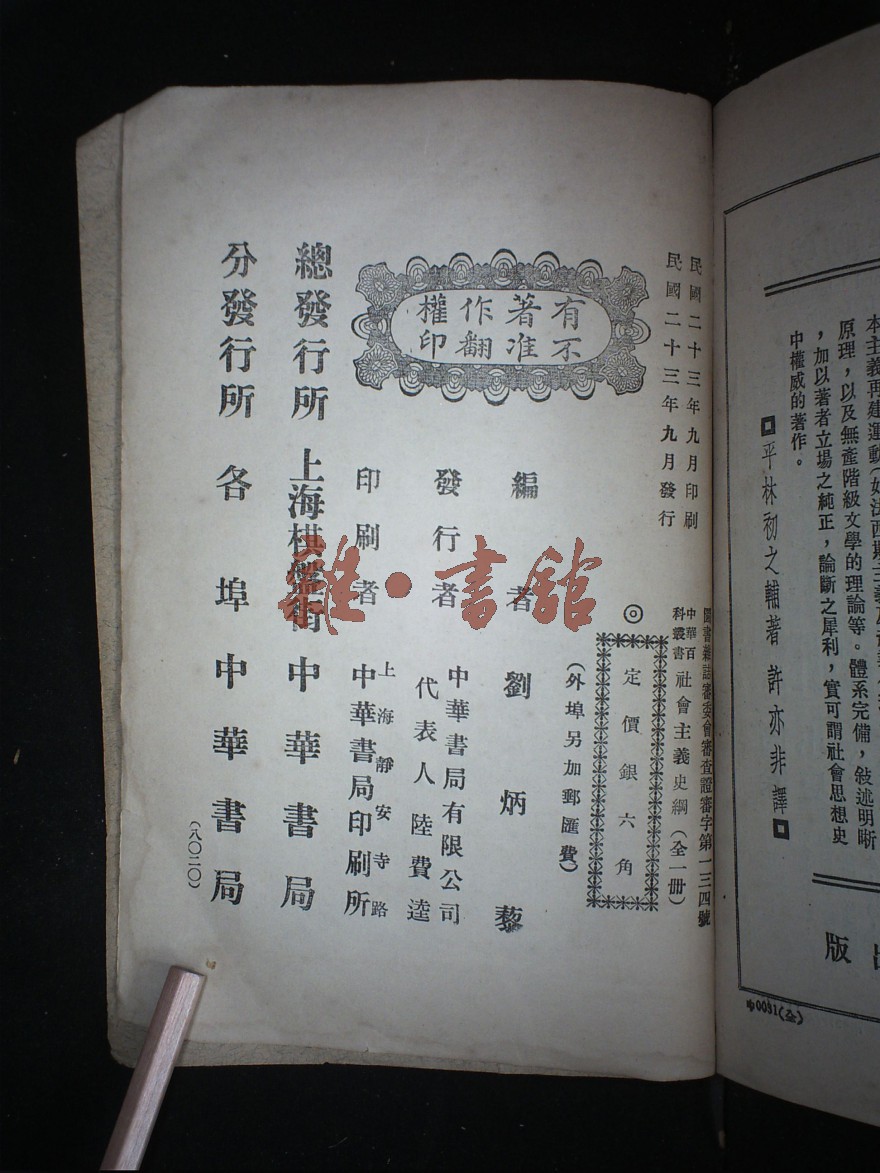 民國二十三年九月印刷
民國二十三年九月發行
圖書雜誌審委會審查證審字第一三四號
中華百科叢書 社會主義史綱（全一册）
◎定價銀六角
（外埠另加郵匯費）
有著作權
不准翻印
編者 劉炳藜
發行者 中華書局有限公司
代表人 陸費逵
印刷者 上海靜安寺路
中華書局印刷所
總發行所 上海棋盤街 中華書局
分發行所 各埠中華書局
（八〇二〇）
雜·書舘
原理，以及無產階級文學的理論等。體系完備，敍述明晰
，加以著者立場之純正，論斷之犀利，實可謂社會思想史
中權威的著作。
平林初之輔著 許亦非譯
版
中0091(全)